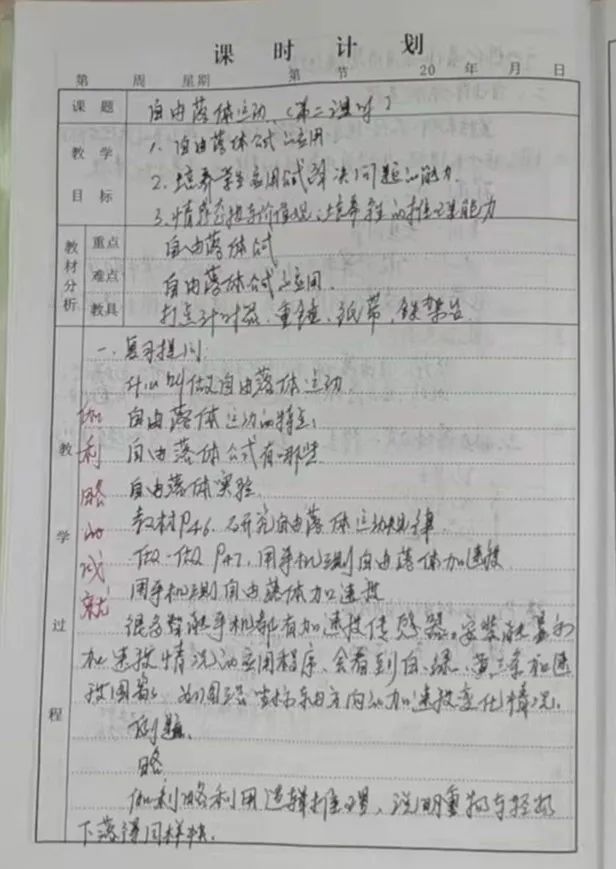 课时计划
第 周 星期 第 节 20 年 月 日
课题 自由落体运动(第二课时)
教学目标 1.自由落体公式的应用
2.培养学生应用公式解决问题的能力
3.情感态度与价值观:培养学生的推理能力
教材分析 重点 自由落体公式
难点 自由落体公式的应用.
教具 打点计时器、重锤、纸带、铁架台
教学过程
伽利略的成就
一、复习提问:
什么叫做自由落体运动
自由落体运动的特点:
自由落体公式有哪些
自由落体实验
教材P46.研究自由落体运动规律
做一做P47.用手机测自由落体加速度
用手机测自由落体加速度
很多智能手机都有加速度传感器。安装能显示
加速度情况的应用程序,会看到白、绿、黄三条加速
度图象 坐标轴方向的加速度变化情况.
例题.
略
伽利略利用逻辑推理,说明重物与轻物
下落得同样快.